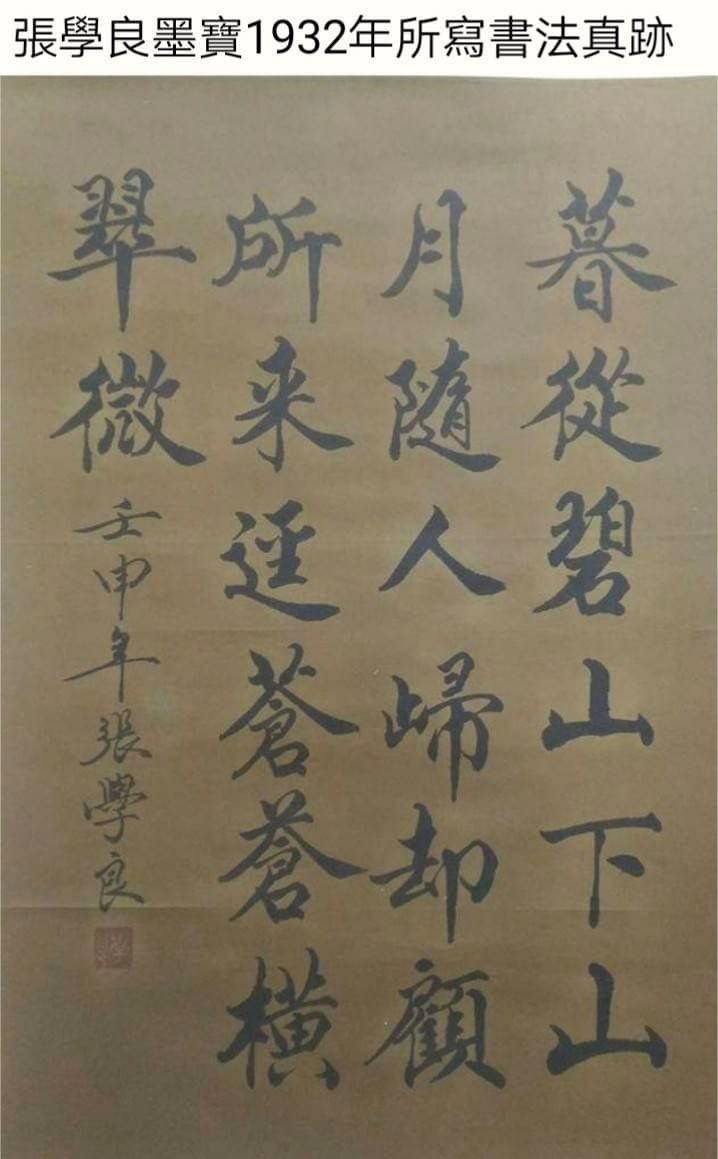 張學良墨寶1932年所寫書法真跡
暮從碧山下山
月隨人歸却顧
所来逕蒼蒼橫
翠微壬申年張學良